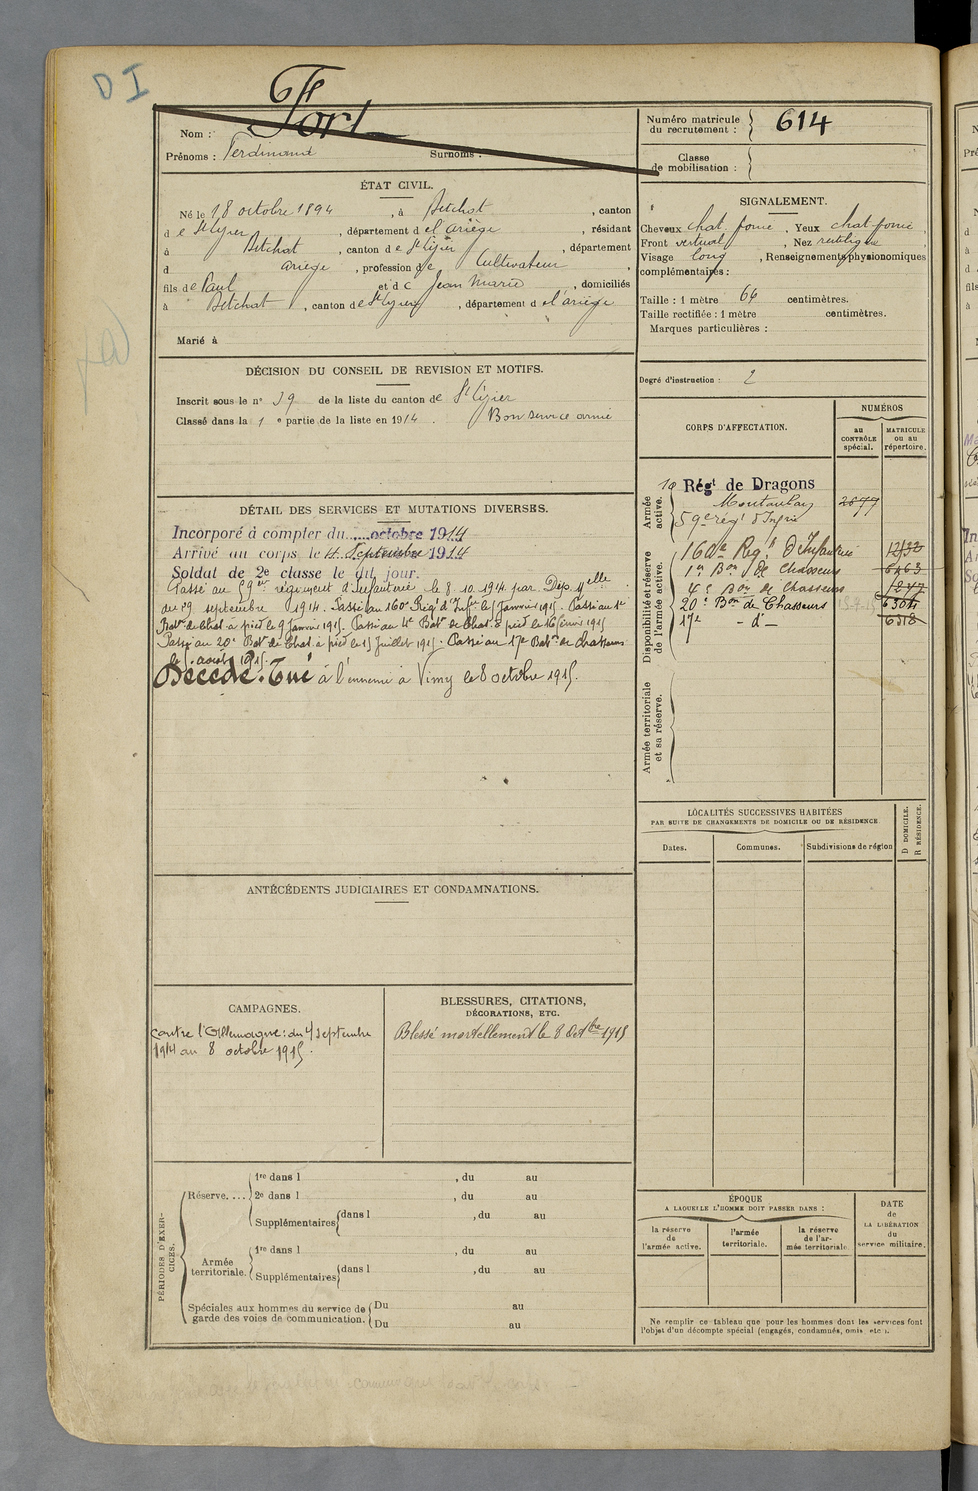 D I
Fort
Nom :
Prénoms : Ferdinand Surnoms :
Numéro matricule du recrutement : 614
Classe de mobilisation :
ÉTAT CIVIL.
Né le 18 octobre 1894, à Betchat, canton
de St Lizier, département de l'ariège, résidant
à Betchat, canton de St Lizier, département
d ariège, profession de Cultivateur,
fils de Paul et de Jean Marie, domiciliés
à Betchat, canton de St Lizier, département de l'ariège
Marié à
SIGNALEMENT.
Cheveux chat. foncé, Yeux chat foncé,
Front vertical, Nez rectiligne
Visage long, Renseignements physionomiques
complémentaires :
Taille : 1 mètre 66 centimètres.
Taille rectifiée : 1 mètre centimètres.
Marques particulières :
DÉCISION DU CONSEIL DE REVISION ET MOTIFS.
Inscrit sous le n° 39 de la liste du canton de St Lizier
Classé dans la 1 e partie de la liste en 1914. Bon service armé
Degré d'instruction : 2
CORPS D'AFFECTATION.
NUMÉROS
au CONTRÔLE spécial.
MATRICULE ou au répertoire.
Armée active.
10 Régt de Dragons
Montauban 2877
59e régt d'Infrie
Disponibilité et réserve de l'armée active.
160e Regt D'Infanterie 12132
1er Bon de Chasseurs 6463
4e Bon de Chasseurs 1877
20e Bon de Chasseurs 6304
17e - d° - 6318
Armée territoriale et sa réserve.
DÉTAIL DES SERVICES ET MUTATIONS DIVERSES.
Incorporé à compter du octobre 1914
Arrivé au corps le 4 Septembre 1914
Soldat de 2e classe le dit jour.
Passé au 59e régiment d'Infanterie le 8.10.1914 par Dép. Melle
du 29 septembre 1914. Passé au 160e Régt d'Infie le 5 Janvier 1915. Passé au 1er
Baton de Chas. à pied le 9 Janvier 1915. Passé au 4e Baton de Chas. à pied le 16 février 1915
Passé au 20e Baton de Chas. à pied le 13 Juillet 1915. Passé au 17e Baton de chasseurs
le 5 août 1915.
Décédé. Tué à l'ennemi à Vimy le 8 octobre 1915.
LOCALITÉS SUCCESSIVES HABITÉES
PAR SUITE DE CHANGEMENTS DE DOMICILE OU DE RÉSIDENCE.
Dates. Communes. Subdivisions de région D DOMICILE. R RÉSIDENCE.
ANTÉCÉDENTS JUDICIAIRES ET CONDAMNATIONS.
CAMPAGNES.
contre l'Allemagne : du 4 septembre
1914 au 8 octobre 1915.
BLESSURES, CITATIONS,
DÉCORATIONS, ETC.
Blessé mortellement le 8 Octbre 1915
PÉRIODES D'EXERCICES.
Réserve....
1re dans l , du au
2e dans l , du au
Supplémentaires dans l , du au
Armée territoriale.
1re dans l , du au
Supplémentaires dans l , du au
Spéciales aux hommes du service de garde des voies de communication.
Du au
Du au
ÉPOQUE
A LAQUELLE L'HOMME DOIT PASSER DANS :
la réserve de l'armée active.
l'armée territoriale.
la réserve de l'armée territoriale.
DATE de LA LIBÉRATION du service militaire.
Ne remplir ce tableau que pour les hommes dont les services font
l'objet d'un décompte spécial (engagés, condamnés, omis, etc.).